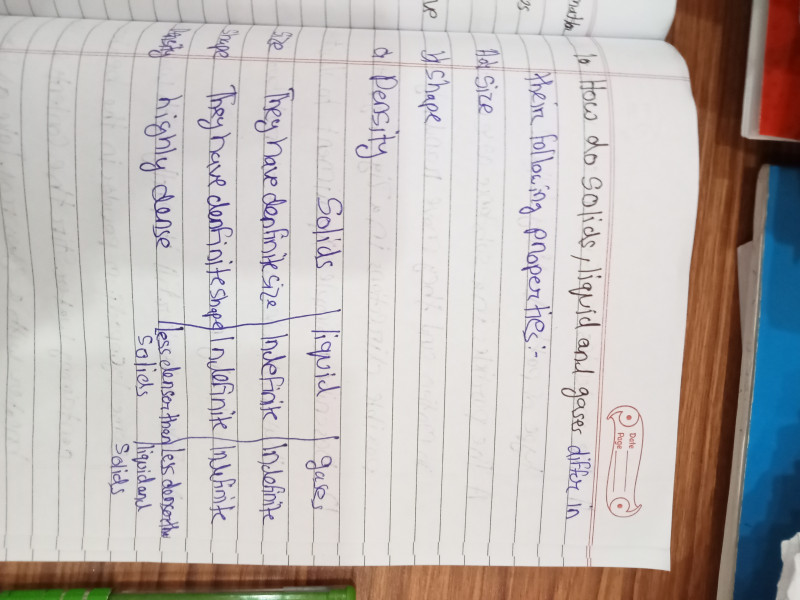 1. How do Solids, liquid and gases differ in
their following properties:-
a) Size
b) Shape
c) Density
Solids | liquid | gases
Size They have definfinite size | Indefinite | Indefinite
Shape They have denfinite shape | Indefinite | Indefinite
highly dense | less denser than | less denser than
Solids | liquid and
Solids
Date
Page